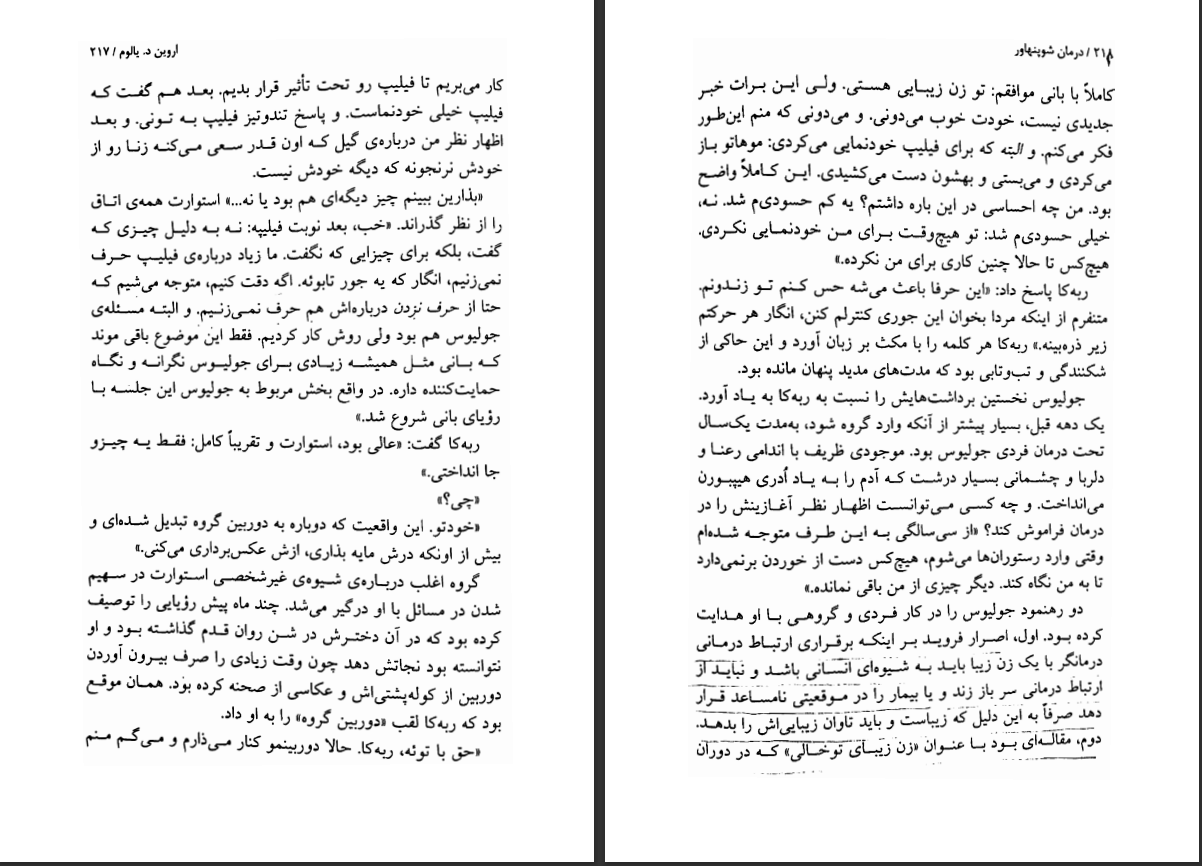 اروین د. یالوم / ۲۱۷
کار می‌بریم تا فیلیپ رو تحت تأثیر قرار بدیم. بعد هم گفت که
فیلیپ خیلی خودنماست. و پاسخ تندوتیز فیلیپ به تونی. و بعد
اظهار نظر من درباره‌ی گیل که اون قدر سعی می‌کنه زنا رو از
خودش نرنجونه که دیگه خودش نیست.
«بذارین ببینم چیز دیگه‌ای هم بود یا نه...» استوارت همه‌ی اتاق
را از نظر گذراند. «خب، بعد نوبت فیلیپه: نه به دلیل چیزی که
گفت، بلکه برای چیزایی که نگفت. ما زیاد درباره‌ی فیلیپ حرف
نمی‌زنیم، انگار که یه جور تابوئه. اگه دقت کنیم، متوجه می‌شیم که
حتا از حرف نزدن درباره‌اش هم حرف نمی‌زنیم. و البته مسئله‌ی
جولیوس هم بود ولی روش کار کردیم. فقط این موضوع باقی موند
که بانی مثل همیشه زیادی برای جولیوس نگرانه و نگاه
حمایت‌کننده داره. در واقع بخش مربوط به جولیوس این جلسه با
رؤیای بانی شروع شد.»
ربه‌کا گفت: «عالی بود، استوارت و تقریباً کامل: فقط یه چیزو
جا انداختی.»
«چی؟»
«خودتو. این واقعیت که دوباره به دوربین گروه تبدیل شده‌ای و
بیش از اونکه درش مایه بذاری، ازش عکس‌برداری می‌کنی.»
گروه اغلب درباره‌ی شیوه‌ی غیرشخصی استوارت در سهیم
شدن در مسائل با او درگیر می‌شد. چند ماه پیش رؤیایی را توصیف
کرده بود که در آن دخترش در شن روان قدم گذاشته بود و او
نتوانسته بود نجاتش دهد چون وقت زیادی را صرف بیرون آوردن
دوربین از کوله‌پشتی‌اش و عکاسی از صحنه کرده بود. همان موقع
بود که ربه‌کا لقب «دوربین گروه» را به او داد.
«حق با توئه، ربه‌کا. حالا دوربینمو کنار می‌ذارم و می‌گم منم
۲۱۸ / درمان شوپنهاور
کاملاً با بانی موافقم: تو زن زیبایی هستی. ولی این برات خبر
جدیدی نیست، خودت خوب می‌دونی. و می‌دونی که منم این‌طور
فکر می‌کنم. و البته که برای فیلیپ خودنمایی می‌کردی: موهاتو باز
می‌کردی و می‌بستی و بهشون دست می‌کشیدی. این کاملاً واضح
بود. من چه احساسی در این باره داشتم؟ یه کم حسودی‌م شد. نه،
خیلی حسودی‌م شد: تو هیچ‌وقت برای من خودنمایی نکردی.
هیچ‌کس تا حالا چنین کاری برای من نکرده.»
ربه‌کا پاسخ داد: «این حرفا باعث می‌شه حس کنم تو زندونم.
متنفرم از اینکه مردا بخوان این جوری کنترلم کنن، انگار هر حرکتم
زیر ذره‌بینه.» ربه‌کا هر کلمه را با مکث بر زبان آورد و این حاکی از
شکنندگی و تب‌وتابی بود که مدت‌های مدید پنهان مانده بود.
جولیوس نخستین برداشت‌هایش را نسبت به ربه‌کا به یاد آورد.
یک دهه قبل، بسیار پیشتر از آنکه وارد گروه شود، به‌مدت یک‌سال
تحت درمان فردی جولیوس بود. موجودی ظریف با اندامی رعنا و
دلربا و چشمانی بسیار درشت که آدم را به یاد اُدری هیپبورن
می‌انداخت. و چه کسی می‌توانست اظهار نظر آغازینش را در
درمان فراموش کند؟ «از سی‌سالگی به این طرف متوجه شده‌ام
وقتی وارد رستوران‌ها می‌شوم، هیچ‌کس دست از خوردن برنمی‌دارد
تا به من نگاه کند. دیگر چیزی از من باقی نمانده.»
دو رهنمود جولیوس را در کار فردی و گروهی با او هدایت
کرده بود. اول، اصرار فروید بر اینکه برقراری ارتباط درمانی
درمانگر با یک زن زیبا باید به شیوه‌ای انسانی باشد و نباید از
ارتباط درمانی سر باز زند و یا بیمار را در موقعیتی نامساعد قرار
دهد صرفاً به این دلیل که زیباست و باید تاوان زیبایی‌اش را بدهد.
دوم، مقاله‌ای بود با عنوان «زن زیبای توخالی» که در دوران